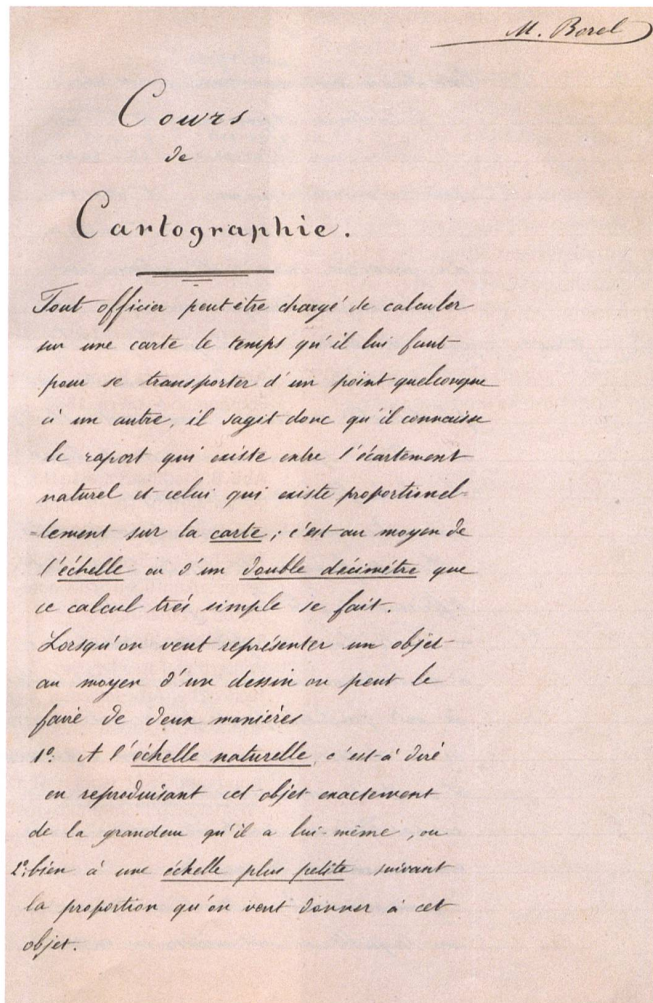 M. Borel
Cours
de
Cartographie.
Tout officier peut être chargé de calculer
sur une carte le temps qu'il lui faut
pour se transporter d'un point quelconque
à un autre, il sagit donc qu'il connaisse
le raport qui existe entre l'écartement
naturel et celui qui existe proportionel-
-lement sur la carte; c'est au moyen de
l'échelle ou d'un double décimètre que
ce calcul très simple se fait.
Lorsqu'on veut représenter un objet
au moyen d'un dessin on peut le
faire de deux manières
1º: A l'échelle naturelle, c'est-à dire
en reproduisant cet objet exactement
de la grandeur qu'il a lui-même, ou
2º: bien à une échelle plus petite suivant
la proportion qu'on veut donner à cet
objet.